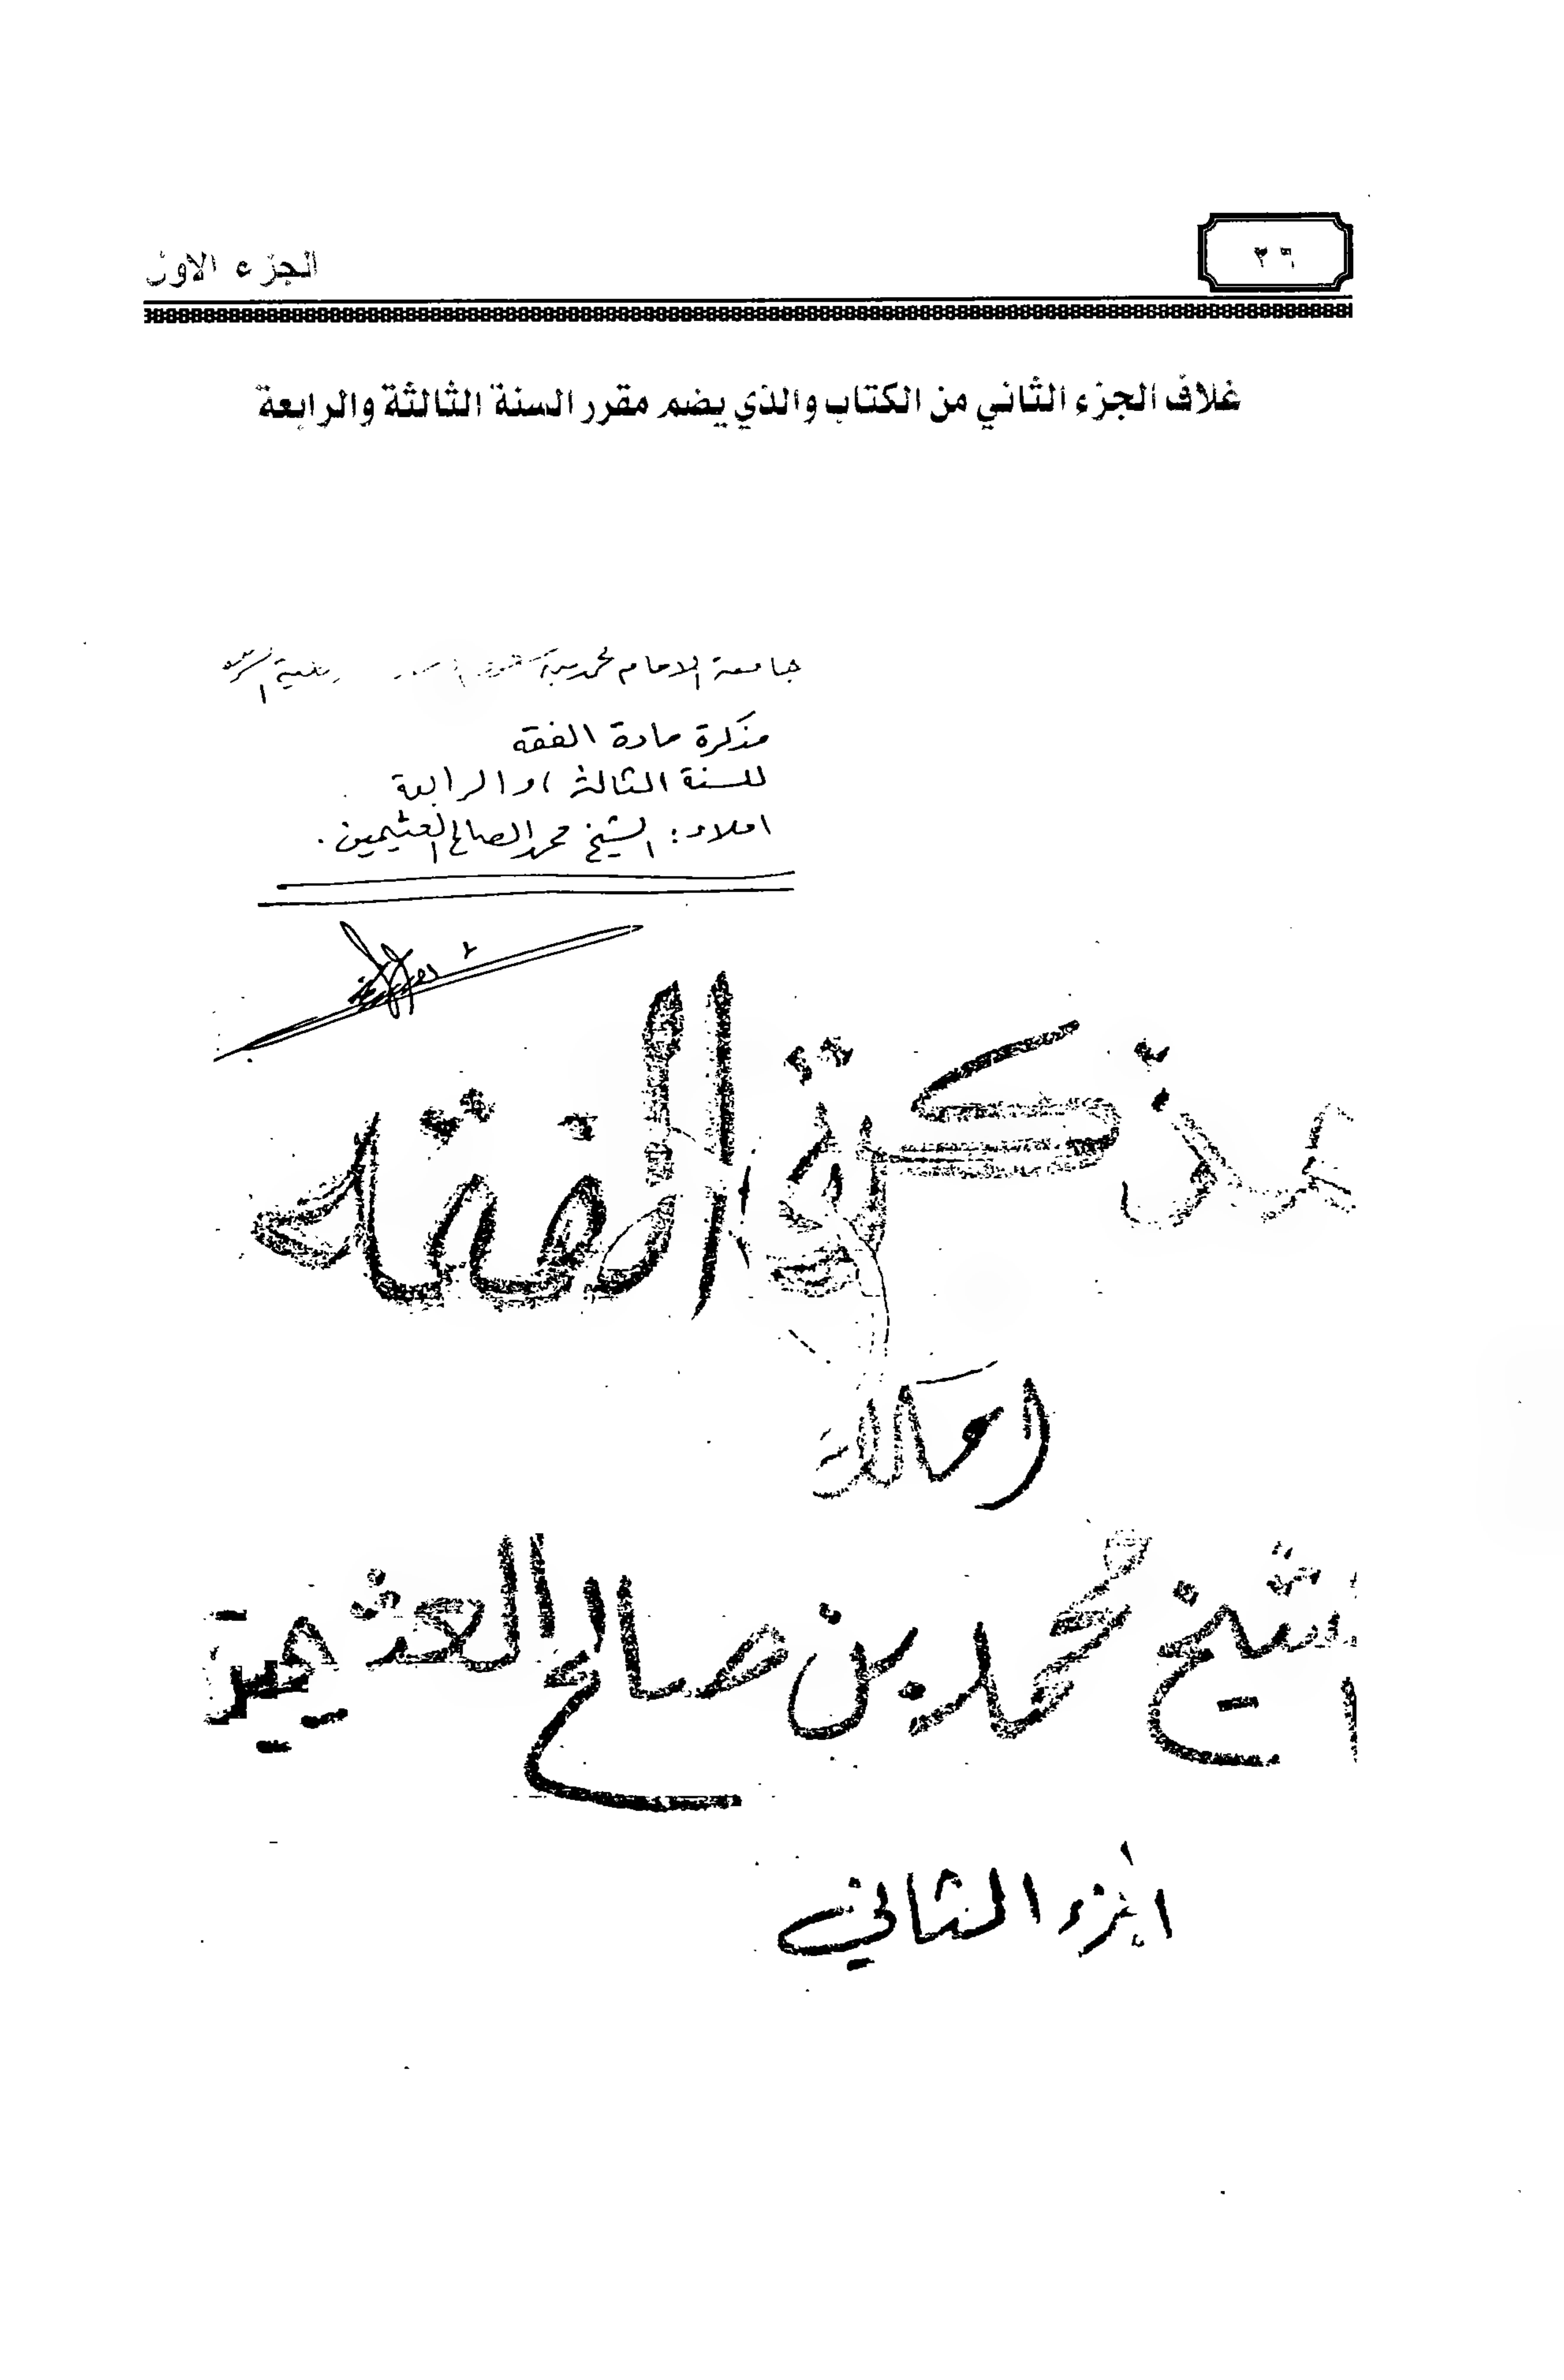 ٢٦
الجزء الأول
غلاف الجزء الثاني من الكتاب والذي يضم مقرر السنة الثالثة والرابعة
جامعة الامام محمد بن سعود
مذكرة مادة الفقه
للسنة الثالثة والرابعة
املاء: الشيخ محمد الصالح العثيمين.
مذكرة الفقه
املاء
الشيخ محمد بن صالح العثيمين
الجزء الثاني